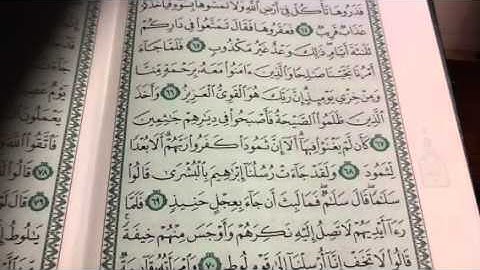 فَذَرُوهَا تَأْكُلْ فِىٓ أَرْضِ ٱللَّهِ وَلَا تَمَسُّوهَا بِسُوٓءٍ فَيَأْخُذَكُمْ
عَذَابٌ قَرِيبٌ ٦٤ فَعَقَرُوهَا فَقَالَ تَمَتَّعُوا۟ فِى دَارِكُمْ
ثَلَٰثَةَ أَيَّامٍ ۖ ذَٰلِكَ وَعْدٌ غَيْرُ مَكْذُوبٍ ٦٥ فَلَمَّا جَآءَ
أَمْرُنَا نَجَّيْنَا صَٰلِحًا وَٱلَّذِينَ ءَامَنُوا۟ مَعَهُۥ بِرَحْمَةٍ مِّنَّا
وَمِنْ خِزْىِ يَوْمِئِذٍ ۗ إِنَّ رَبَّكَ هُوَ ٱلْقَوِىُّ ٱلْعَزِيزُ ٦٦ وَأَخَذَ
ٱلَّذِينَ ظَلَمُوا۟ ٱلصَّيْحَةُ فَأَصْبَحُوا۟ فِى دِيَٰرِهِمْ جَٰثِمِينَ
٦٧ كَأَن لَّمْ يَغْنَوْا۟ فِيهَآ ۗ أَلَآ إِنَّ ثَمُودَا۟ كَفَرُوا۟ رَبَّهُمْ ۗ أَلَا بُعْدًا
لِّثَمُودَ ٦٨ وَلَقَدْ جَآءَتْ رُسُلُنَآ إِبْرَٰهِيمَ بِٱلْبُشْرَىٰ قَالُوا۟
سَلَٰمًا ۖ قَالَ سَلَٰمٌ ۖ فَمَا لَبِثَ أَن جَآءَ بِعِجْلٍ حَنِيذٍ ٦٩ فَلَمَّا
رَءَآ أَيْدِيَهُمْ لَا تَصِلُ إِلَيْهِ نَكِرَهُمْ وَأَوْجَسَ مِنْهُمْ خِيفَةً ۚ
قَالُوا۟ لَا تَخَفْ إِنَّآ أُرْسِلْنَآ إِلَىٰ قَوْمِ لُوطٍ ٧٠ وَٱمْرَأَتُهُۥ قَآئِمَةٌ